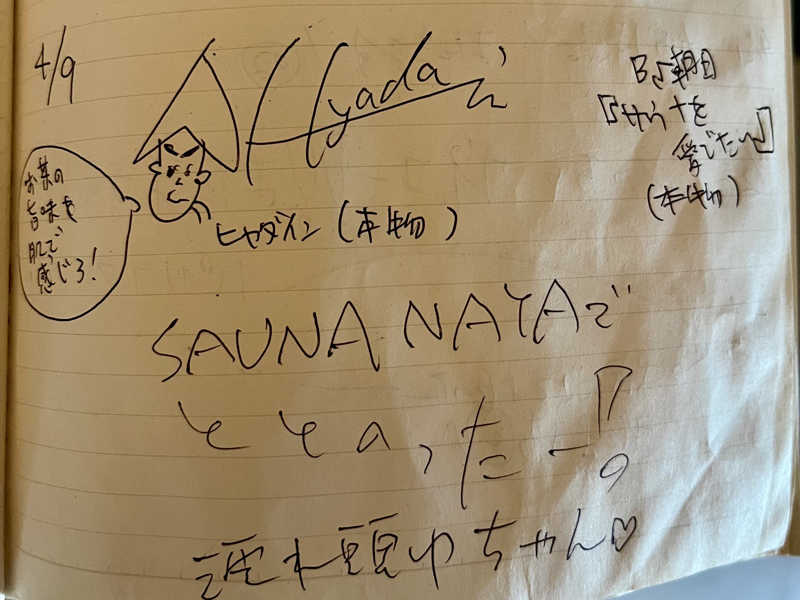 4/9
Hyadain
BS朝日
『サウナを
愛でたい』
(本物)
お茶の
旨味を
肌で
感じろ!
ヒャダイン(本物)
SAUNA NAYAで
ととのったー!
濡れ頭巾ちゃん♡